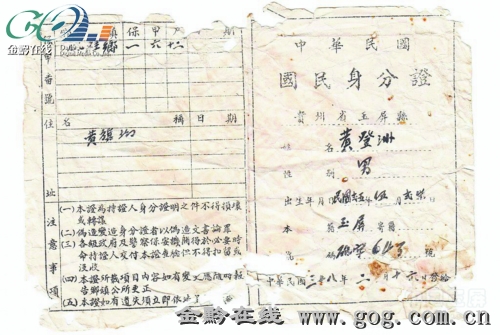 GO
金黔在线
中華民國
國民身分證
貴州省玉屏縣
姓名 黃登洲
性別 男
出生年月日 民國
本籍 玉屏 寄籍
字第 號
中華民國三十八年二月十六日發給
保甲番號
鎮 保 甲 戶 期
鄉 一 六 十二
住址
名稱 日期
黃旗
注意事項
(一)本證為持證人身分證明之件不得損壞
或轉讓
(二)偽造變造身分證者以偽造文書論罪
(三)各級政府及警察保安機關得於必要時
命持證人交付本證查驗但不得扣留或
沒收
(四)本證所載項目內容如有變更應隨時報
告鄉鎮公所更正
(五)本證如有遺失項立即依址
金黔在线 www.gog.com.cn